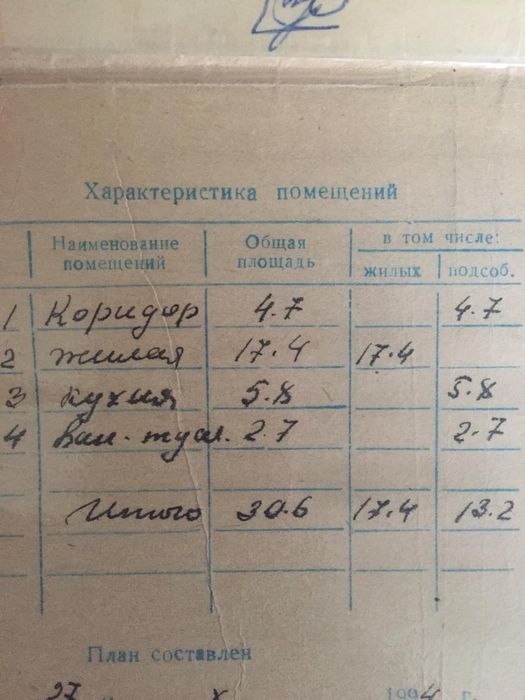 Характеристика помещений
Наименование помещений Общая площадь в том числе: жилых подсоб.
1 Коридор 4.7 4.7
2 жилая 17.4 17.4
3 кухня 5.8 5.8
4 Ван. туал. 2.7 2.7
Итого 30.6 17.4 13.2
План составлен
27 X 1994 г.